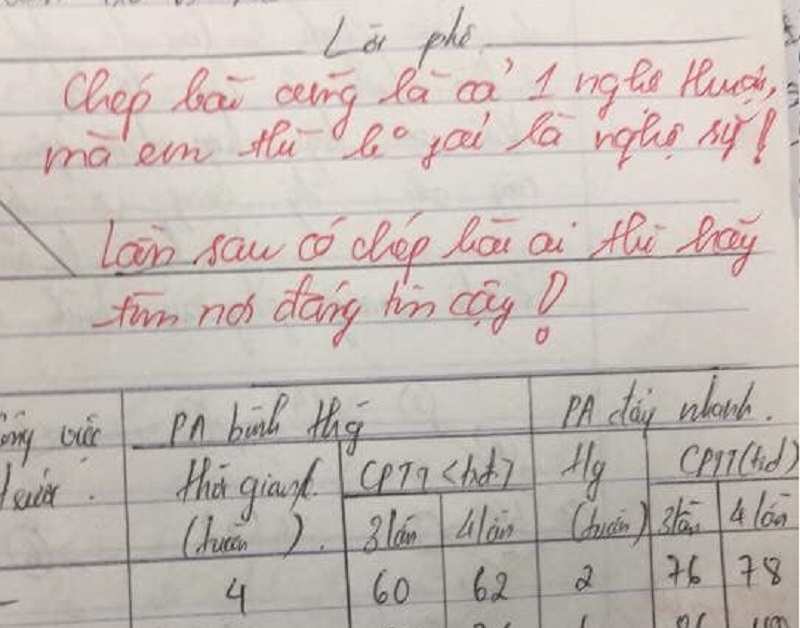 Lời phê
Chép bài cũng là cả 1 nghệ thuật,
mà em thì k° phải là nghệ sỹ!
Lần sau có chép bài ai thì hãy
tìm nơi đáng tin cậy!
công việc PA bình thg PA đẩy nhanh.
trước. thời gian (tuần). CPTT (trđ) tg (tuần) CPTT (trđ)
3 lần 4 lần 3 lần 4 lần
- 4 60 62 2 76 78